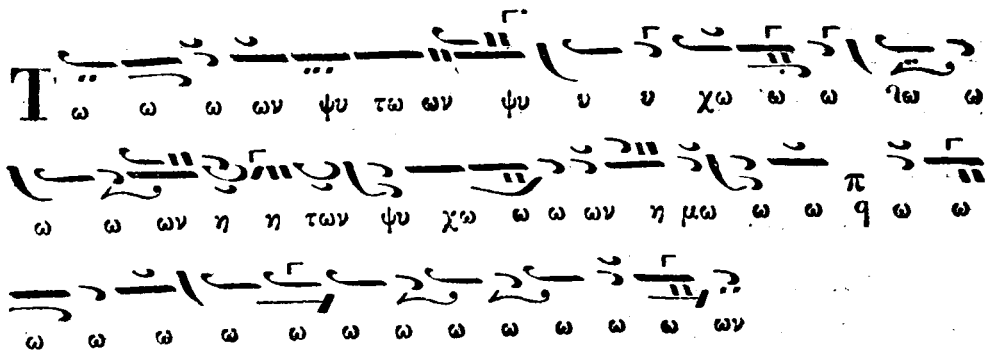 Τ ω ω ω ων ψυ τω ων ψυ υ υ χω ω ω λω ω
ω ω ων η η των ψυ χω ω ω ων η μω ω ω π q ω ω
ω ω ω ω ω ω ω ω ω ω ω ω ων